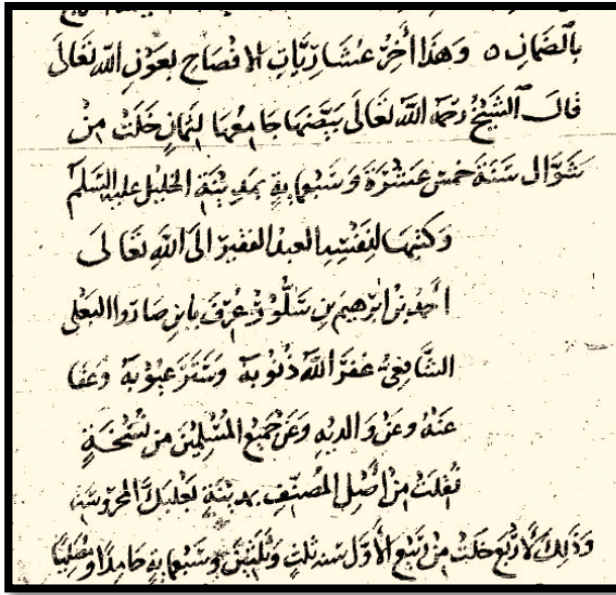 بالضمان ٥ وهذا آخر عشاريات الافصاح بعون الله تعالى
قال الشيخ رحمه الله تعالى بيضها جامعها لثمان خلت من
شوال سنة خمس عشرة وسبعماية بمدينة الخليل عليه السلم
وكتبها لنفسه العبد الفقير الى الله تعالى
احمد بن ابرهيم بن عرف بابن صاروا البعلى
الشافعى غفر الله ذنوبه وستر عيوبه وعفا
عنه وعن والديه وعن جميع المسلمين من نسخة
نقلت من اصل المصنف بمدينة بعلبك المحروسة
وذلك لاربع خلت من ربيع الأول سنه ثلث وثلثين وسبعماية حامدا ومصليا